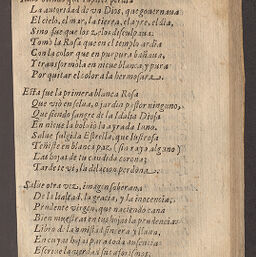 La autoridad di vn Dios, que gouernaua
El cielo, el mar, la tierra, el ayre, el dia,
Sino que que los zelos disculpaua
Tomò la Rosa que en el templo ardia
Con la color que en purpura bañaua,
Y transformola en nieue blanca, y pura
Por quitar el color a la hermosura.
Esta fue la primera blanca Rosa
Que viò en selua, o jardin pastor ninguno,
Que siendo sangre de la Idalia Diosa
En nieue la boluiò la ayrada Iuno.
Salue fulgida Estrella, que lustrosa
Teñiste en blanca paz (si a rayo alguno)
Las hojas de tu candida corona;
Tarde te vi, la dilacion perdona.
Salue otra vez, imagen soberana
De la lealtad, la gracia, y la inocencia,
Prudente virgen, que naciendo cana
Bien muestras en tus hojas la prudencia:
Libro de la amistad sincera y llana,
En cuyas hojas para toda ausencia
Escriue la verdad sus aforismos,